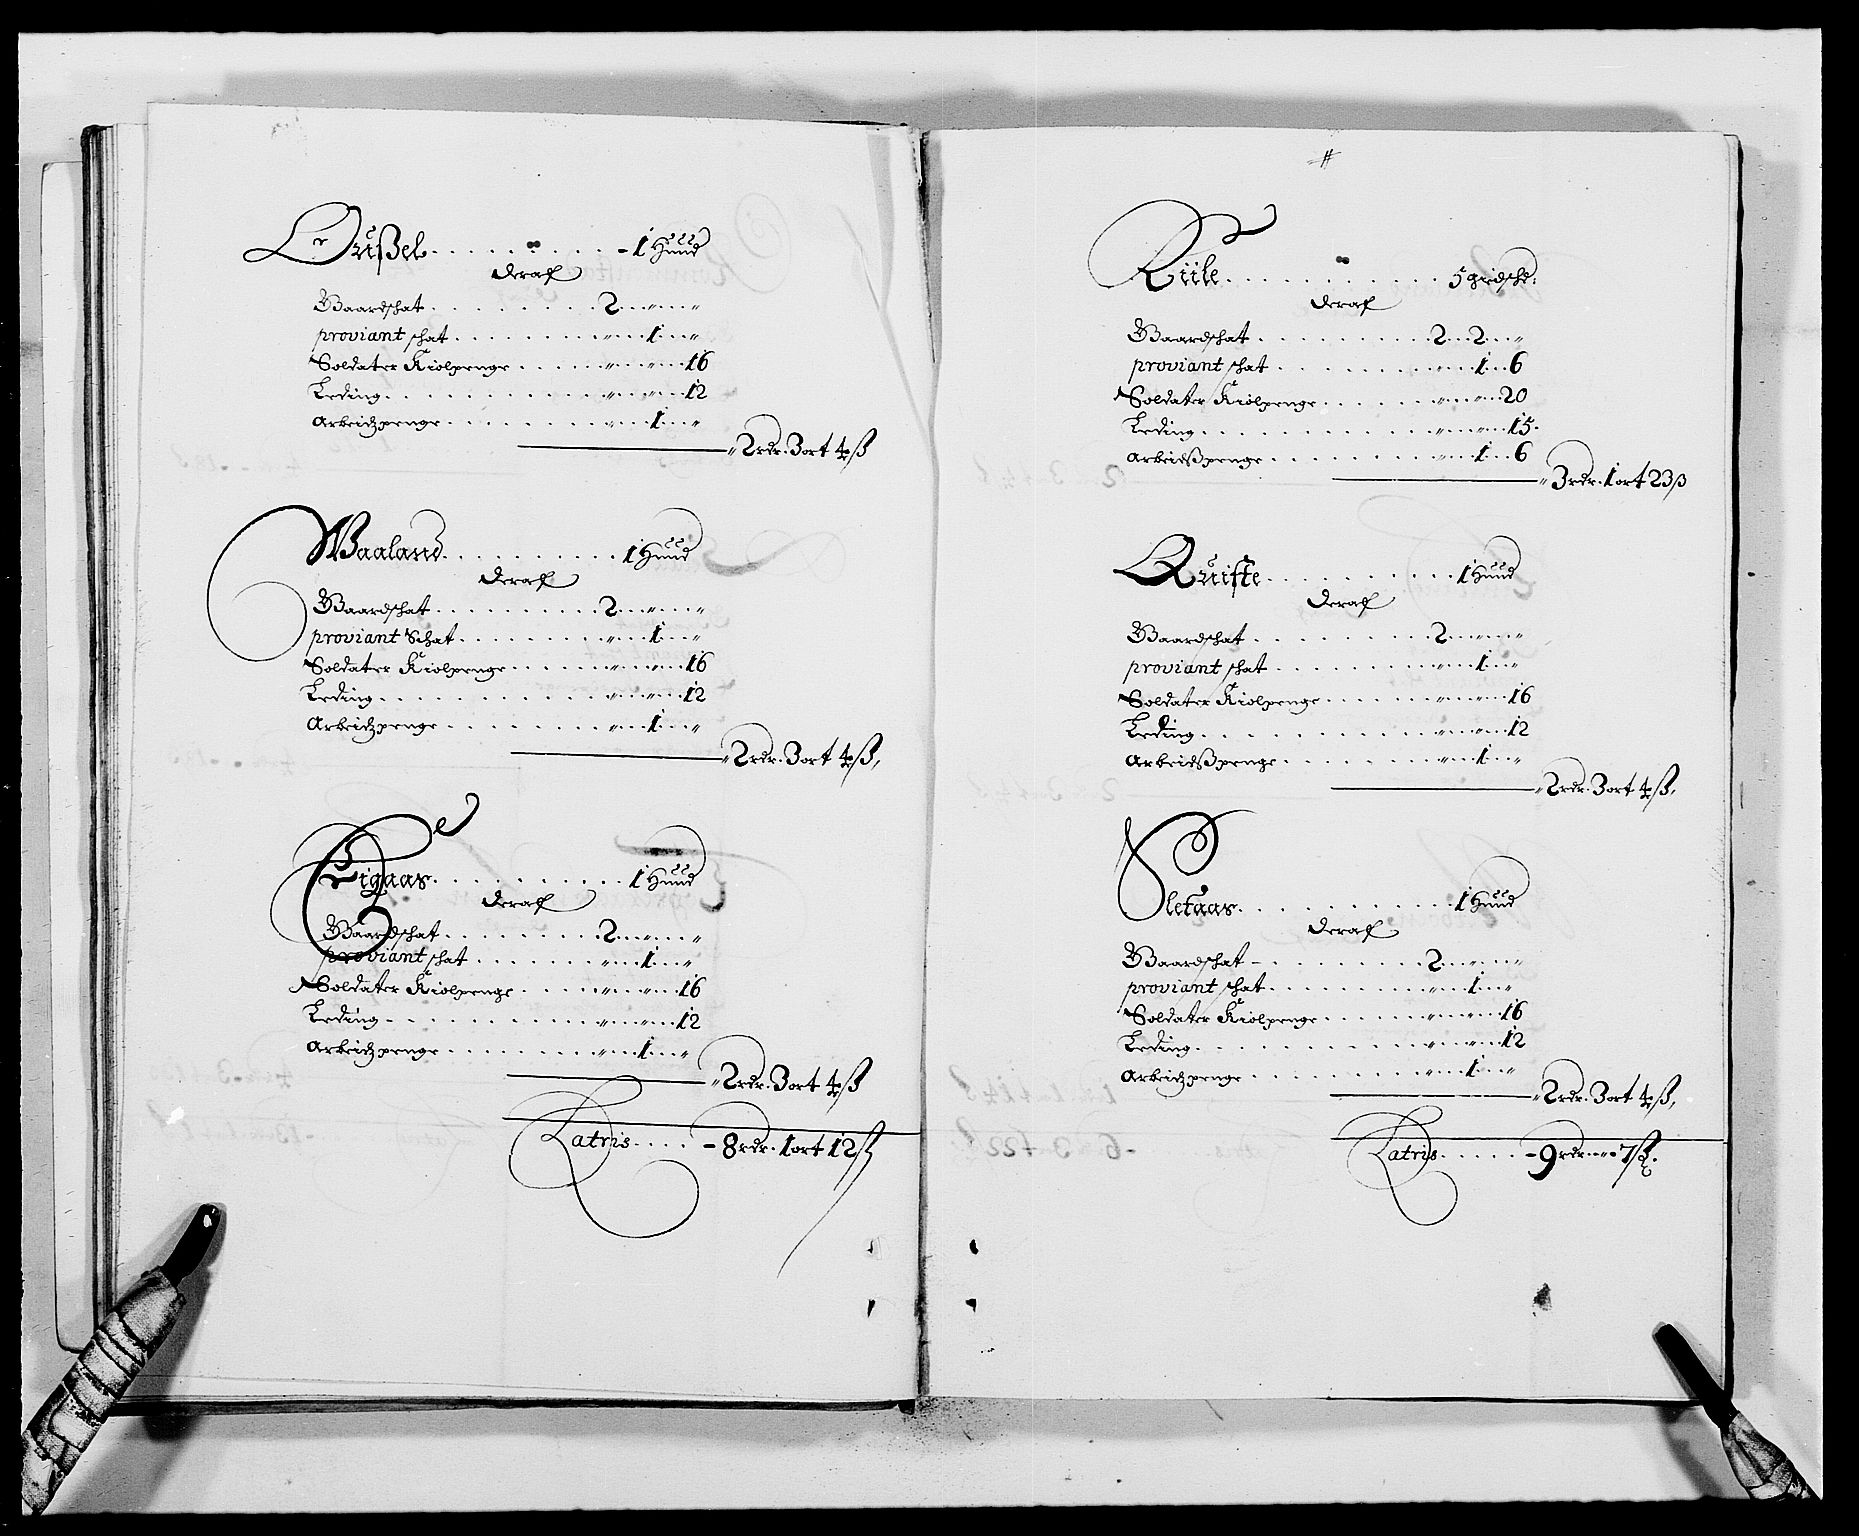 Drüßel . . . . . . . . - 1 Huud
deraf
Baardschat . . . . . . . 2 „ „
proviant schat . . . . . „ 1 „
Soldater Kiolpenge . . . . „ „ 16
Leding . . . . . . . . „ „ 12
Arbeidzpenge . . . . . . „ 1 „
„ 2 rdr. 3 ort 4 ß
Waaland . . . . . . . . 1 Huud
deraf
Baardschat . . . . . . . 2 „ „
proviant Schat . . . . . „ 1 „
Soldater Kiolpenge . . . . „ „ 16
Leding . . . . . . . . „ „ 12
Arbeidzpenge . . . . . . „ 1 „
„ 2 rdr. 3 ort 4 ß,
Eigaas . . . . . . . . 1 Huud
deraf
Baardschat . . . . . . . 2 „ „
proviant schat . . . . . „ 1 „
Soldater Kiolpenge . . . . „ „ 16
Leding . . . . . . . . „ „ 12
Arbeidzpenge . . . . . . „ 1 „
„ 2 rdr. 3 ort 4 ß
Latris . . . . - 8 rdr. 1 ort 12 ß
Riile . . . . . . . . 5 gridsche:
deraf
Baardschat . . . . . . . 2 „ 2 „
proviant schat . . . . . „ 1 „ 6
Soldater Kiolpenge . . . . „ „ 20
Leding . . . . . . . . „ „ 15.
Arbeidßpenge . . . . . . „ 1 „ 6
„ 3 rdr. 1 ort 23 ß
Quiste . . . . . . . . 1 Huud
deraf
Baardschat . . . . . . . 2 „ „
proviant schat . . . . . „ 1 „
Soldater Kiolpenge . . . . „ „ 16
Leding . . . . . . . . „ „ 12
Arbeidßpenge . . . . . . „ 1 „
„ 2 rdr. 3 ort 4 ß,
Sletaas . . . . . . . . 1 Huud
deraf
Baardschat - . . . . . . 2 „ „
proviant schat . . . . . „ 1 „
Soldater Kiolpenge . . . . „ „ 16
Leding . . . . . . . . „ „ 12
Arbeidzpenge . . . . . . „ 1 „
„ 2 rdr. 3 ort 4 ß,
Latris . . . . . - 9 rdr. „ 7 ß.